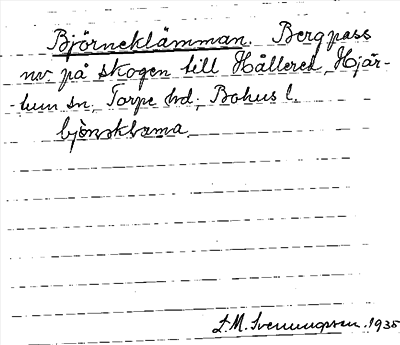 Björneklämman. Bergpass
nv. på skogen till Hållered, Hjär-
-tum sn, Torpe hd, Bohus l.
L.M. Svenungsson. 1935